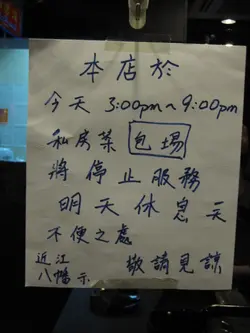 本店於
今天 3:00pm~9:00pm
私房菜 包場
將停止服務
明天休息一天
不便之處
敬請見諒
近江
八幡 示